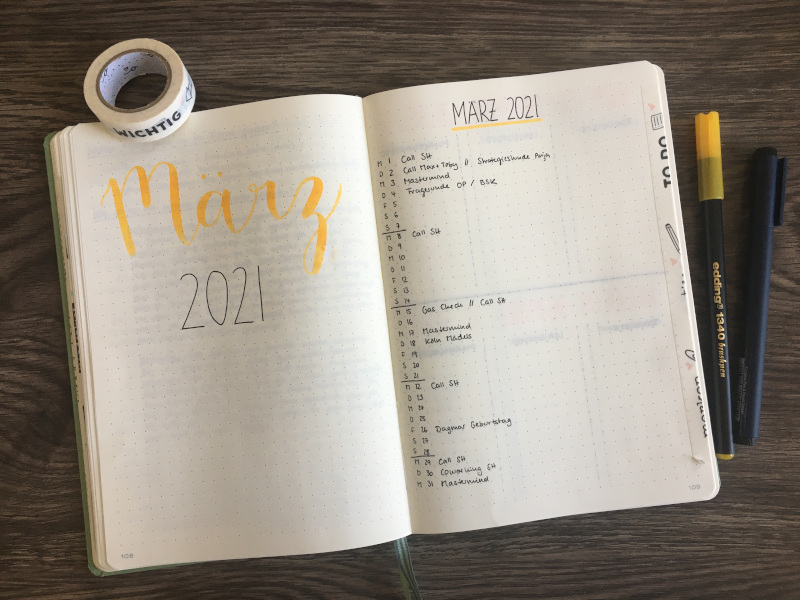 WICHTIG
März
2021
108
MÄRZ 2021
M 1 Call SH
D 2 Call Max + Toby // Strategierunde Anja
M 3 Mastermind
D 4 Fragerunde OP / BSK
F 5
S 6
S 7
M 8 Call SH
D 9
M 10
D 11
F 12
S 13
S 14
M 15 Gas Check // Call SH
D 16
M 17 Mastermind
D 18 Köln Mädels
F 19
S 20
S 21
M 22 Call SH
D 23
M 24
D 25
F 26 Dagmar Geburtstag
S 27
S 28
M 29 Call SH
D 30 Coworking SH
M 31 Mastermind
109
TO DO
edding 1340 brushpen